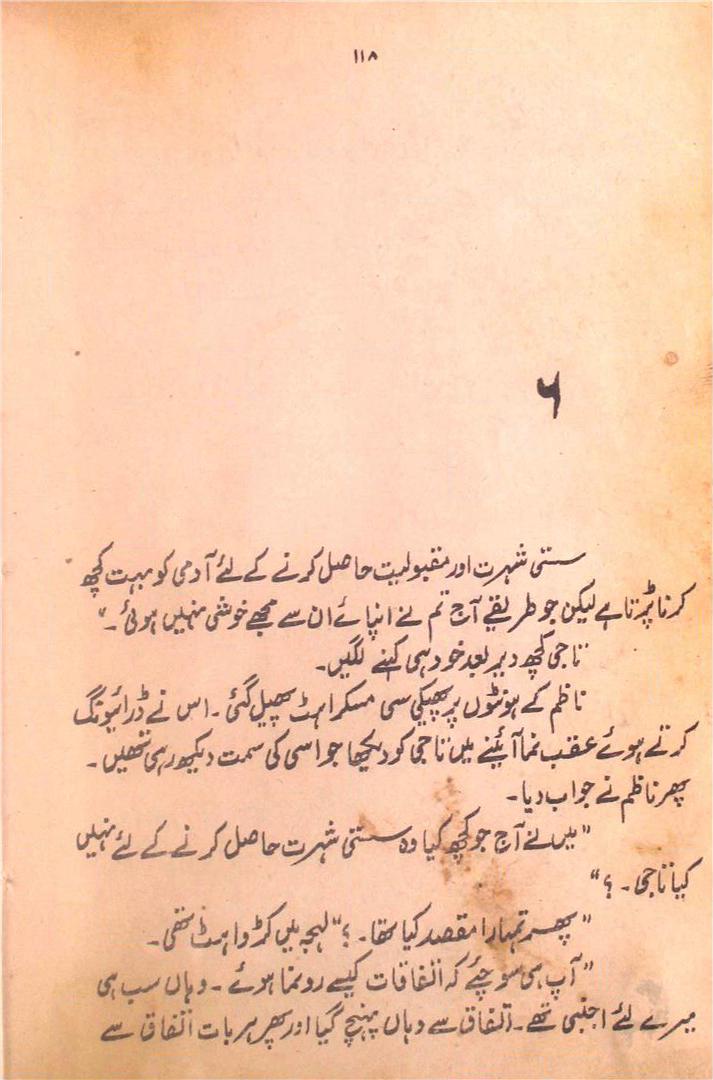 ۱۱۸
۶
سستی شہرت اور مقبولیت حاصل کرنے کے لئے آدمی کو بہت کچھ
کرنا پڑتا ہے لیکن جو طریقے آج تم نے اپنائے ان سے مجھے خوشی نہیں ہوئی۔"
ناجی کچھ دیر بعد خود ہی کہنے لگیں۔
ناظم کے ہونٹوں پر پھیکی سی مسکراہٹ پھیل گئی۔ اس نے ڈرائیونگ
کرتے ہوئے عقب نما آئینے میں ناجی کو دیکھا جو اسی کی سمت دیکھ رہی تھیں۔
پھر ناظم نے جواب دیا۔
"میں نے آج جو کچھ کیا وہ سستی شہرت حاصل کرنے کے لئے نہیں
کیا ناجی۔؟"
"پھر تمہارا مقصد کیا تھا۔؟" لہجہ میں کڑواہٹ تھی۔
"آپ ہی سوچئے کہ اتفاقات کیسے رونما ہوئے۔ وہاں سب ہی
میرے لئے اجنبی تھے۔ اتفاق سے وہاں پہنچ گیا اور پھر ہر بات اتفاق سے